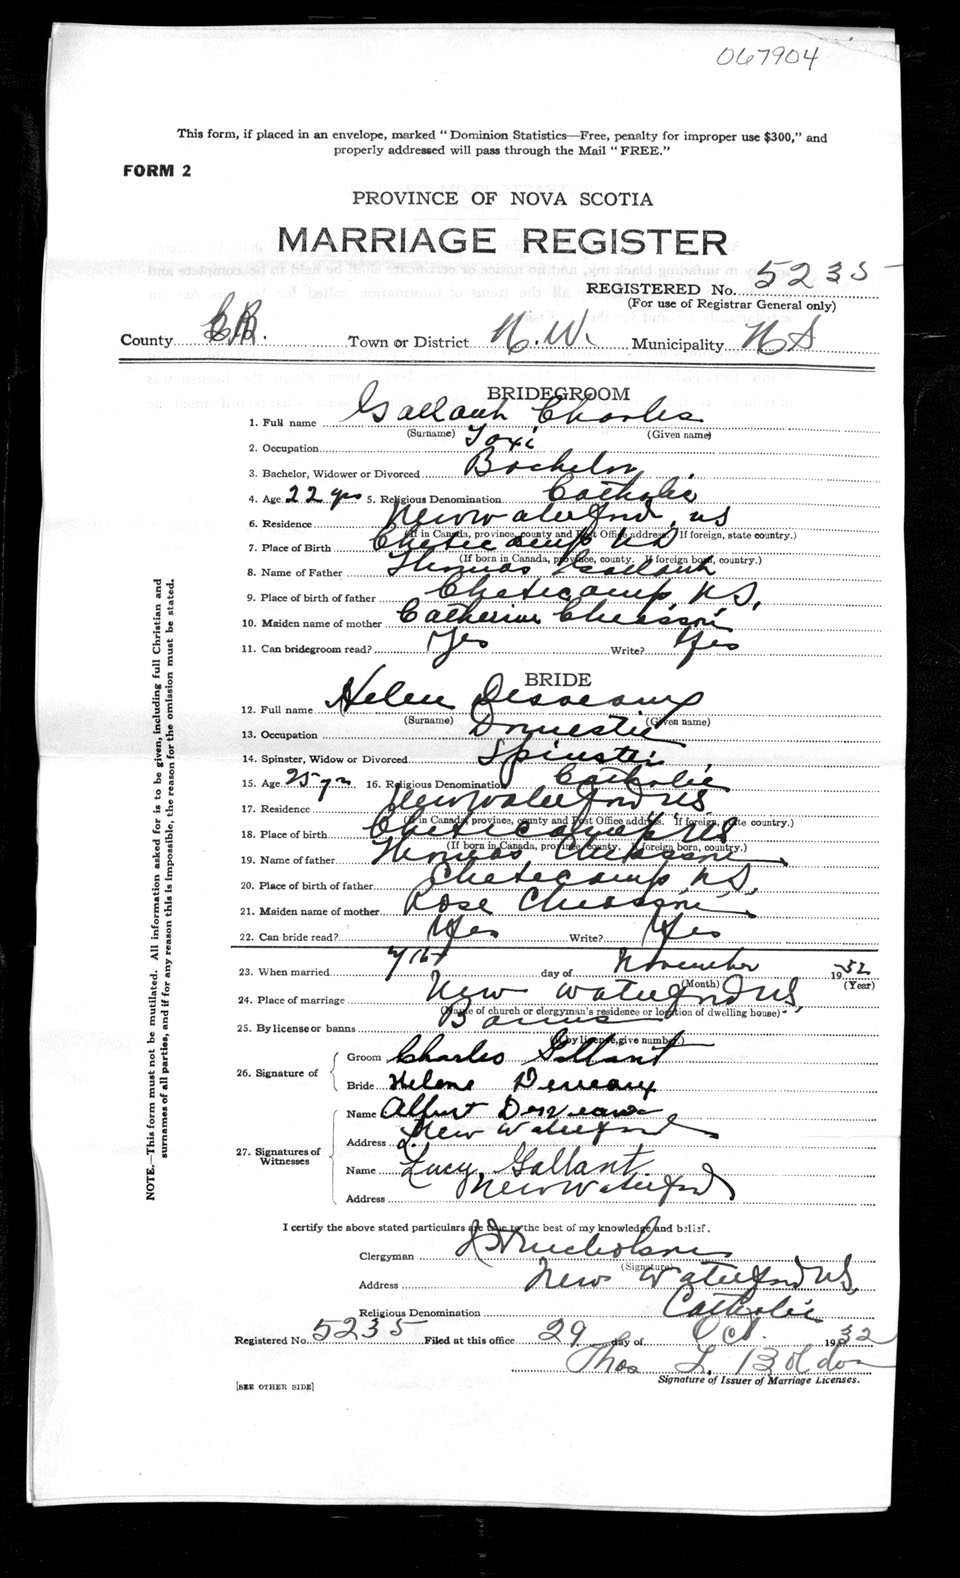 067904
This form, if placed in an envelope, marked "Dominion Statistics—Free, penalty for improper use $300," and
properly addressed will pass through the Mail "FREE."
FORM 2
PROVINCE OF NOVA SCOTIA
MARRIAGE REGISTER
REGISTERED No. 5235
(For use of Registrar General only)
County C.B. Town or District N.W. Municipality NS
BRIDEGROOM
1. Full name Gallant Charles
(Surname) (Given name)
2. Occupation Taxi
3. Bachelor, Widower or Divorced Bachelor
4. Age 22 yrs 5. Religious Denomination Catholic
6. Residence New Waterford, NS
(If in Canada, province, county and Post Office address. If foreign, state country.)
7. Place of Birth Cheticamp NS
(If born in Canada, province, county. If foreign born, country.)
8. Name of Father Thomas Gallant
9. Place of birth of father Cheticamp, N.S.
10. Maiden name of mother Catherine Chiasson
11. Can bridegroom read? Yes Write? Yes
BRIDE
12. Full name Helen Desveaux
(Surname) (Given name)
13. Occupation Domestic
14. Spinster, Widow or Divorced Spinster
15. Age 25 yrs 16. Religious Denomination Catholic
17. Residence New Waterford NS
(If in Canada, province, county and Post Office address. If foreign, state country.)
18. Place of birth Cheticamp NS
(If born in Canada, province, county. If foreign born, country.)
19. Name of father Thomas
20. Place of birth of father Cheticamp N.S.
21. Maiden name of mother Rose Chiasson
22. Can bride read? Yes Write? Yes
23. When married day of November 1932
(Month) (Year)
24. Place of marriage New Waterford NS,
(Name of church or clergyman's residence or location of dwelling house)
25. By license or banns Banns
(If by license, give number.)
26. Signature of Groom Charles Gallant
Bride Helene Deveaux
27. Signatures of Witnesses
Name Albert Desveaux
Address New Waterford
Name Lucy Gallant
Address New Waterford
I certify the above stated particulars are true to the best of my knowledge and belief.
Clergyman Nicholson
(Signature)
Address New Waterford NS,
Religious Denomination Catholic
Registered No. 5235 Filed at this office 29 day of Oct. 1932
Thos L.
Signature of Issuer of Marriage Licenses.
[SEE OTHER SIDE]
NOTE.—This form must not be mutilated. All information asked for is to be given, including full Christian and
surnames of all parties, and if for any reason this is impossible, the reason for the omission must be stated.